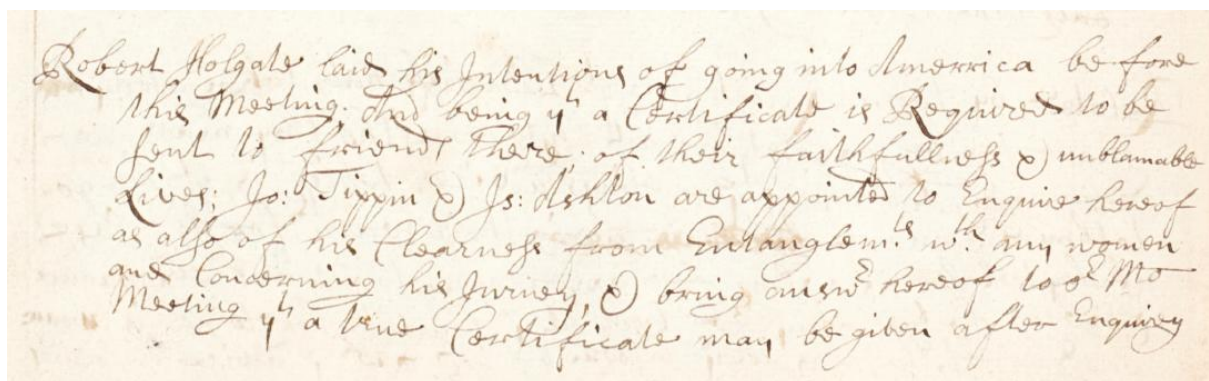 Robert Holgate laid his Intentions of going into Amerrica be fore
this Meeting; And being yt a Certificate is Required to be
sent to friends there of their faithfullness & unblamable
Lives; Jo: Tippin & Js: Ashton are appointed to Enquire hereof
as also of his Clearness from Entanglemts wth any women
and Concerning his Juriey, & bring answr hereof to or Mo
Meeting yt a true Certificate may be given after Enquirey